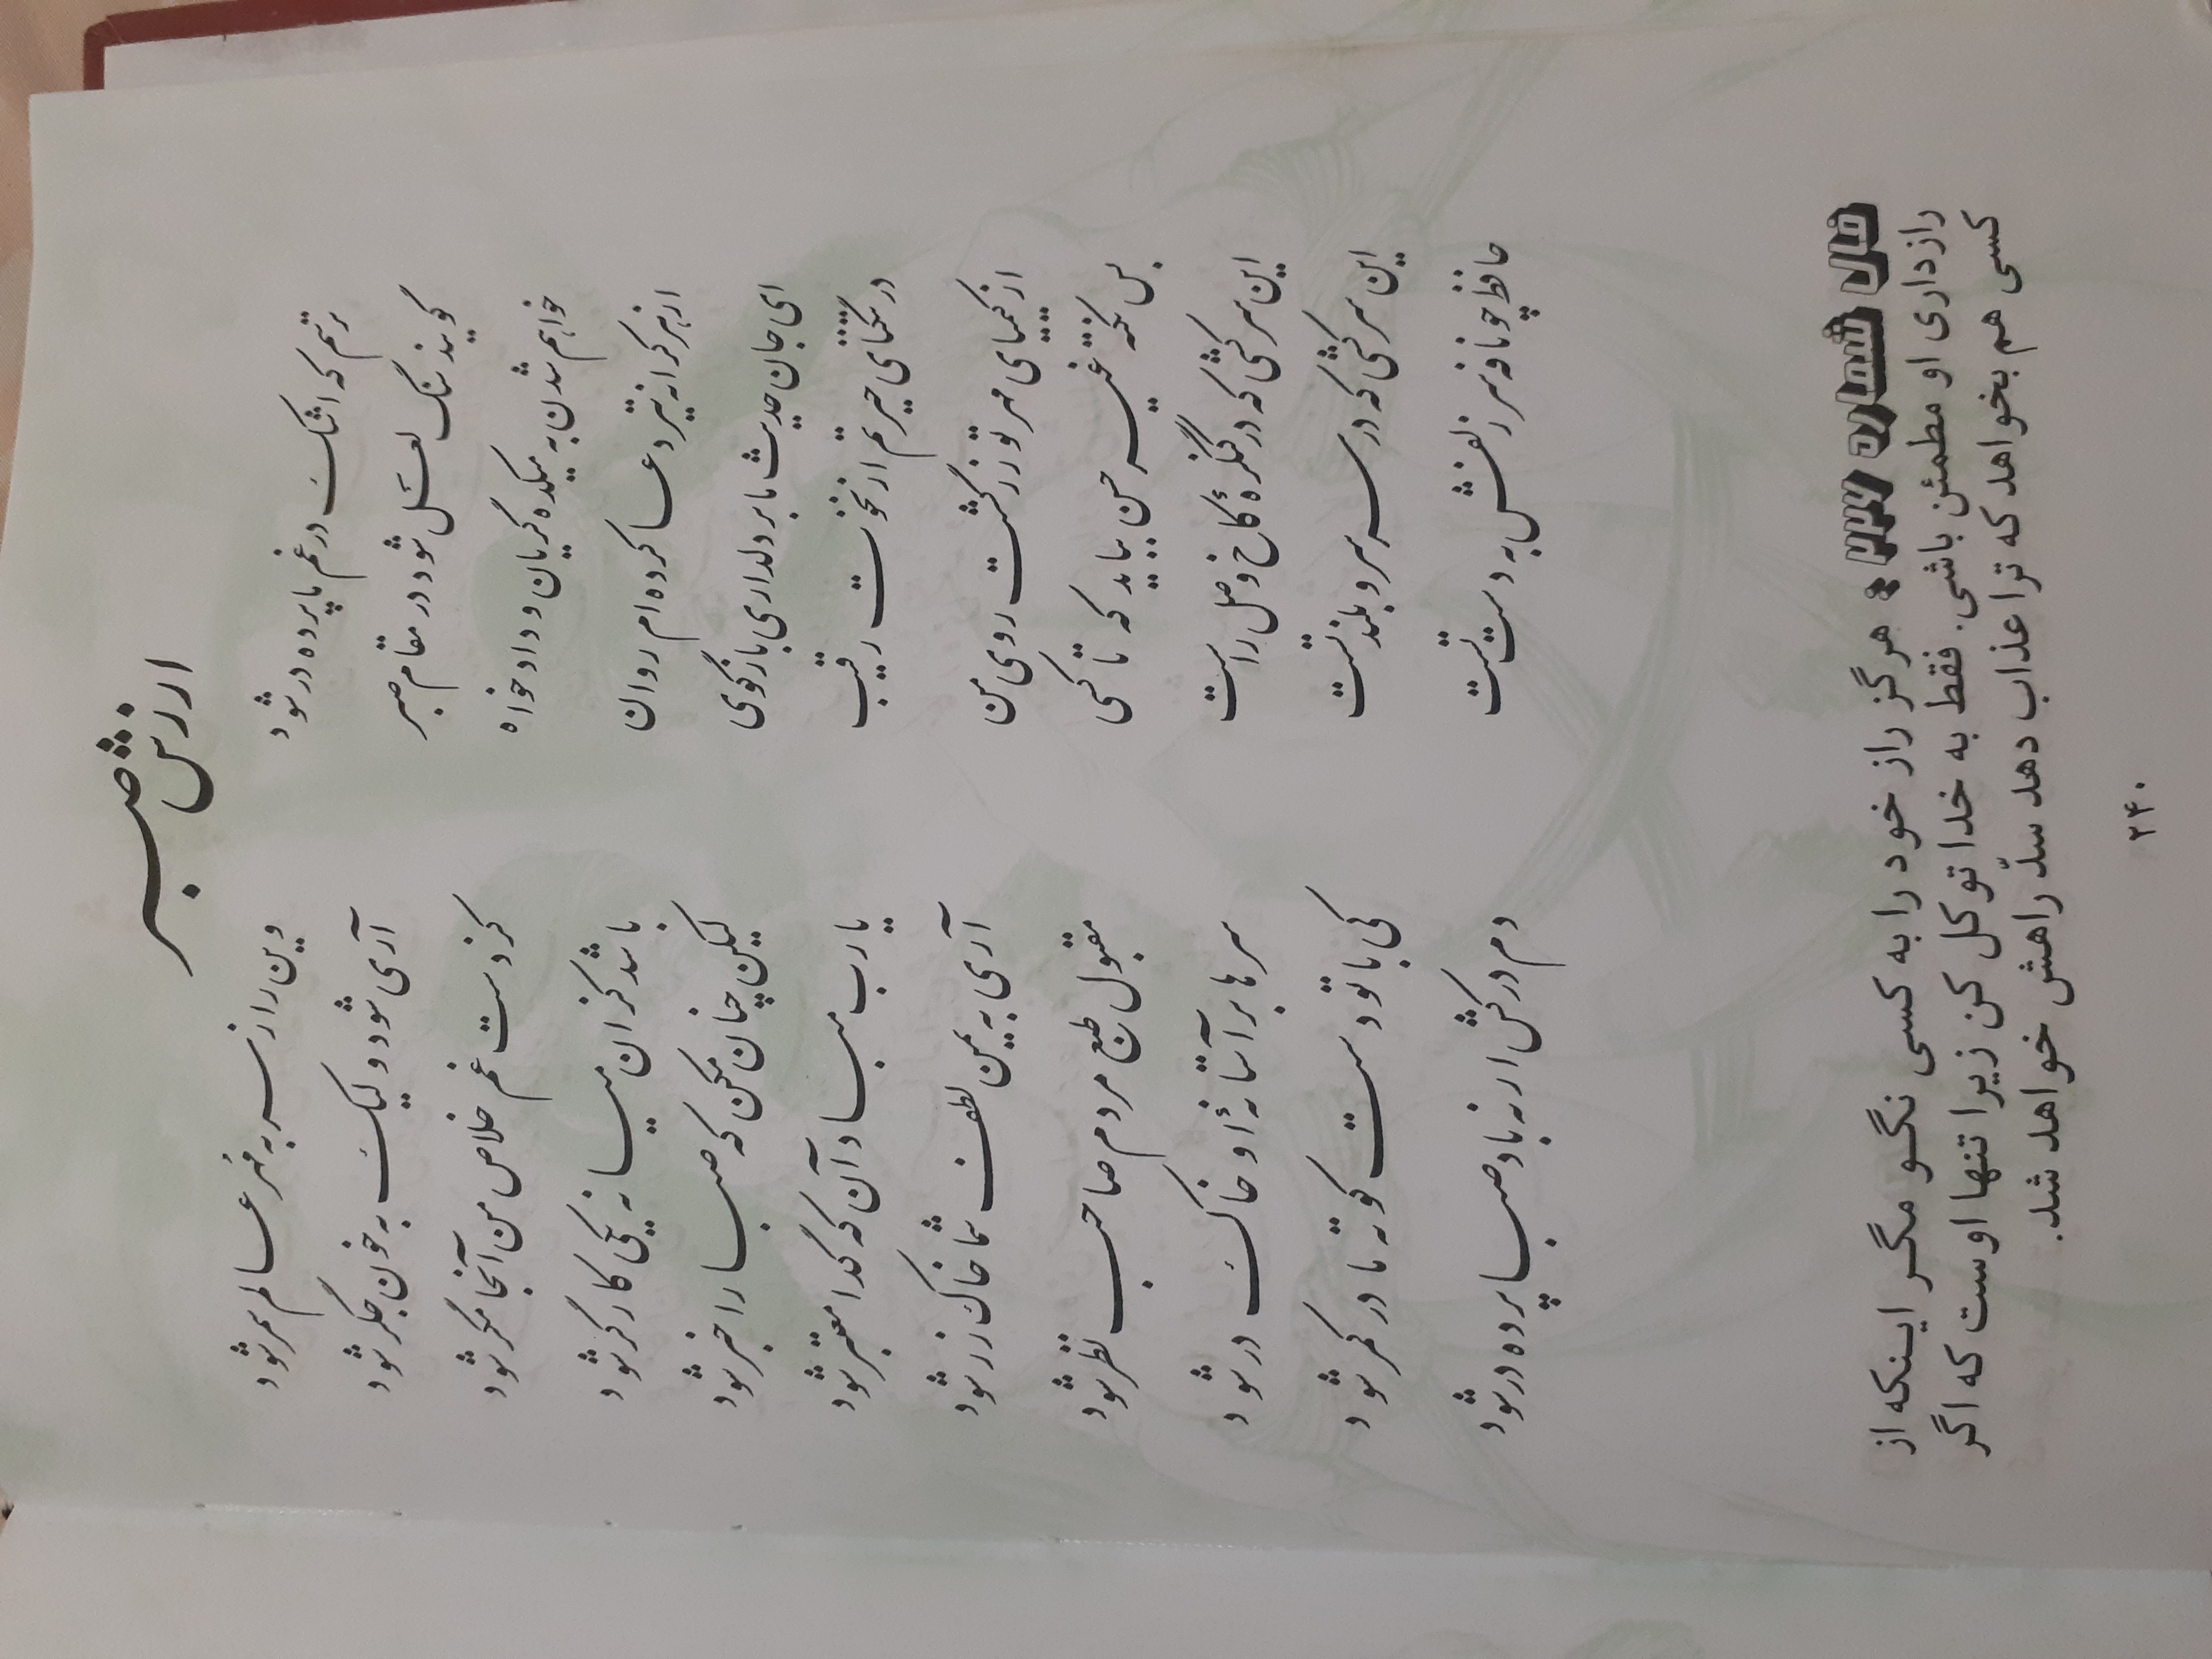 ارزش صبر
ترسم که اشک در غم ما پرده در شود
وین راز سر به مُهر به عالم سمر شود
گویند سنگ لعل شود در مقام صبر
آری شود ولیک به خون جگر شود
خواهم شدن به میکده گریان و دادخواه
کز دست غم خلاص من آنجا مگر شود
از هر کرانه تیر دعا کرده‌ام روان
باشد کزان میانه یکی کارگر شود
ای جان حدیث ما بر دلداری بازگوی
لیکن چنان مگن که صبا را خبر شود
در تنگنای حیرتم از نخوت رقیب
یارب مباد آن که گدا معتبر شود
از کیمیای مهر تو زر گشت روی من
آری به یمن لطف شما خاک زر شود
بس نکته غیر حسن بباید که تا کسی
مقبول طبع مردم صاحب نظر شود
این سرکشی که در کنگرهٔ کاخ وصل راست
سرها بر آستانهٔ او خاک در شود
این سرکشی که در سر سرو بلند تست
کی با تو دست کوته ما در کمر شود
حافظ چو نافه سر زلفش به دست تست
دم درکش ارنه باد صبا پرده در شود
فال شماره ۲۲۲: هرگز راز خود را به کسی نگو مگر اینکه از
رازداری او مطمئن باشی. فقط به خدا توکل کن زیرا تنها اوست که اگر
کسی هم بخواهد که ترا عذاب دهد سدّ راهش خواهد شد.
۲۴۰